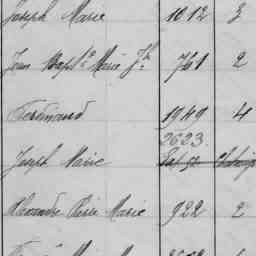 Joseph Marie 1012 3
Jean Bapte Marie Jh 761 2
Ferdinand 1949 4
2623
Joseph Marie
Alexandre Pierre Marie 922 2